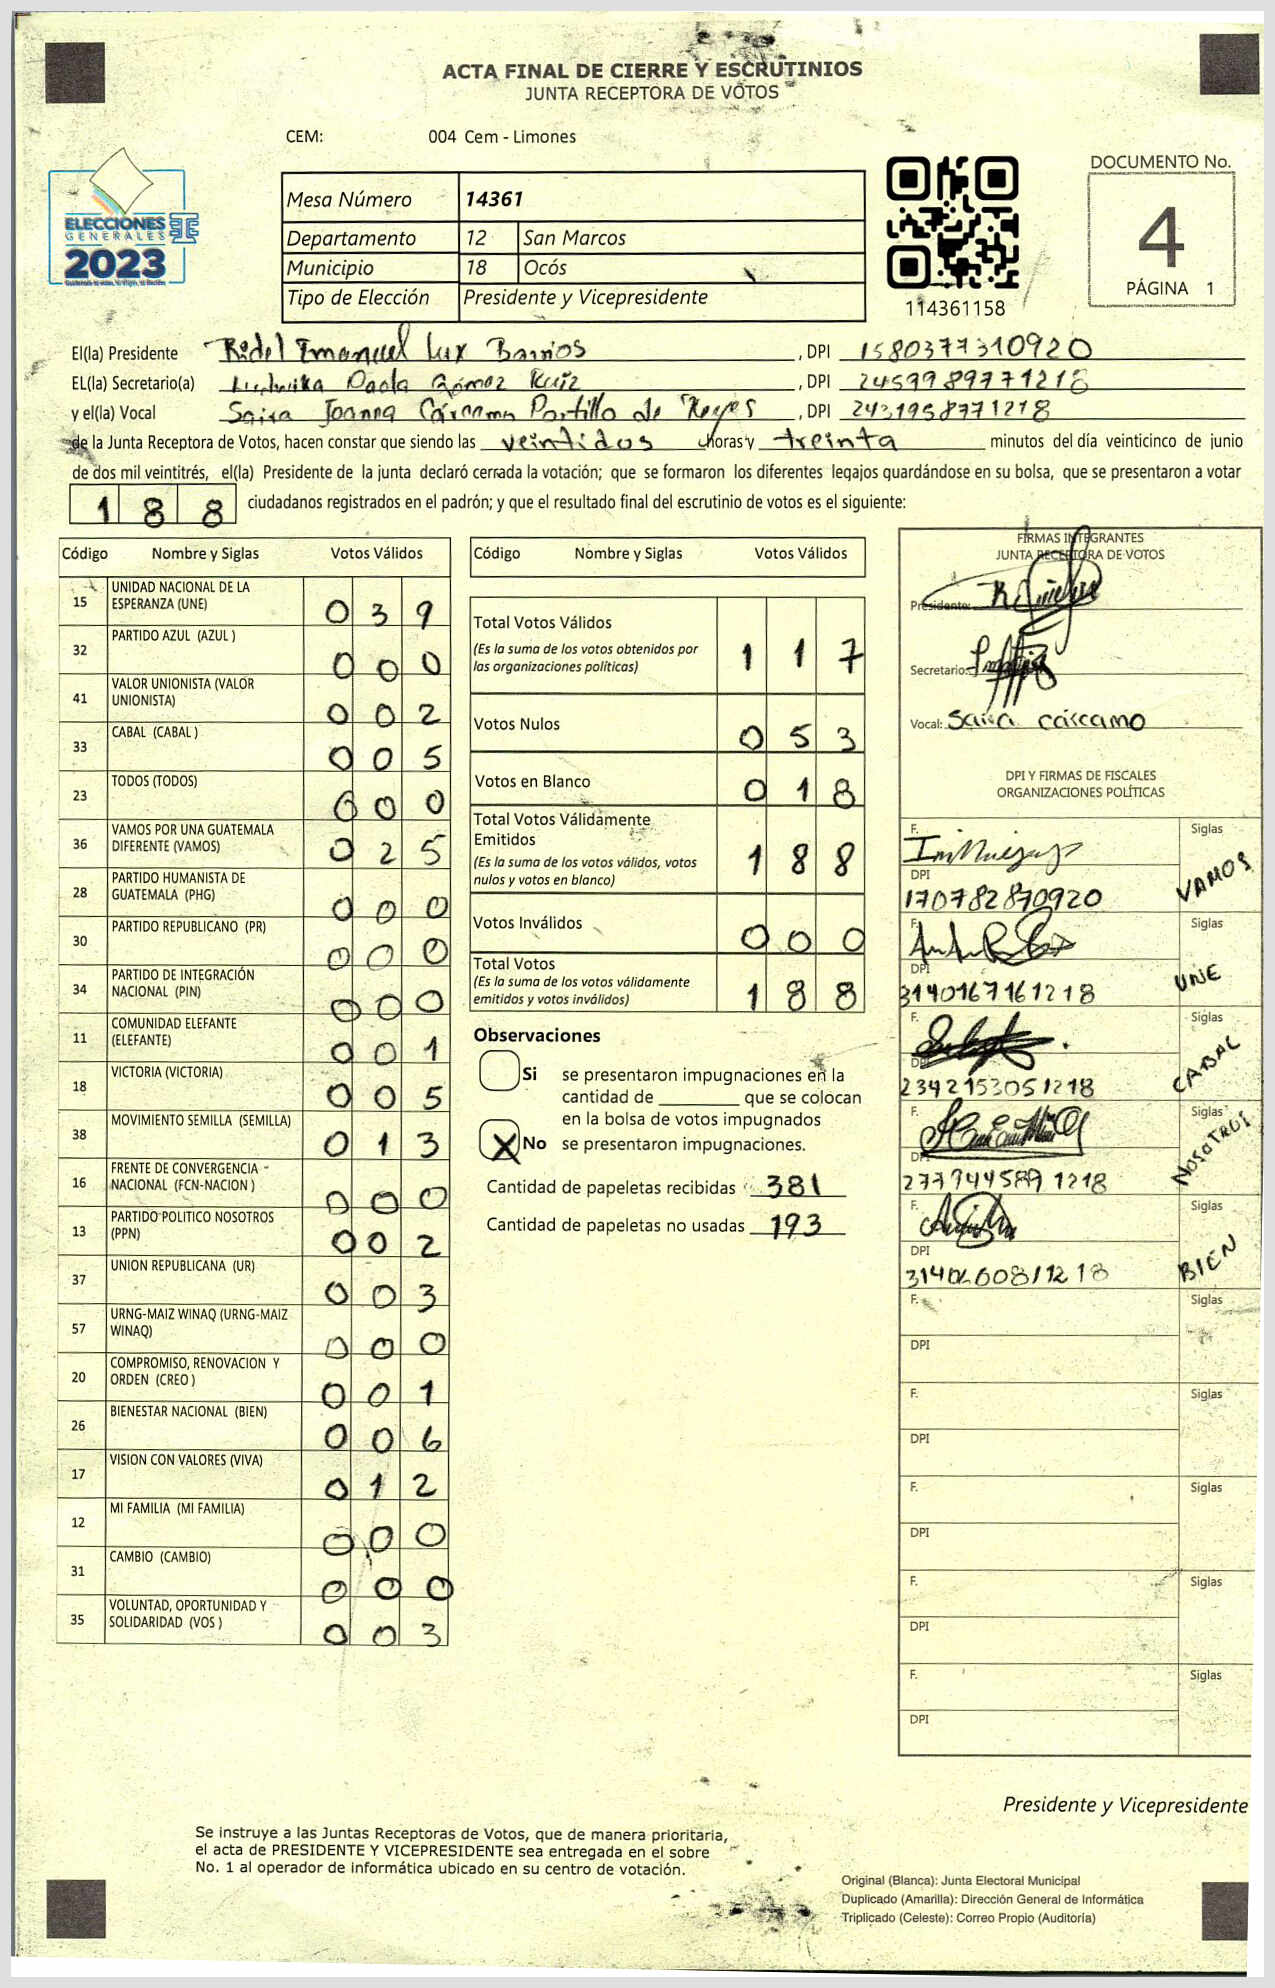 ACTA FINAL DE CIERRE Y ESCRUTINIOS
JUNTA RECEPTORA DE VOTOS
CEM: 004 Cem - Limones
ELECCIONES
GENERALES
2023
Mesa Número 14361
Departamento 12 San Marcos
Municipio 18 Ocós
Tipo de Elección Presidente y Vicepresidente
114361158
DOCUMENTO No.
4
PÁGINA 1
El(la) Presidente Ridel Emanuel Lux Barrios , DPI 1580377310920
EL(la) Secretario(a) Ludwika Paola Gómez Ruiz , DPI 2459989771218
y el(la) Vocal Saira Joanna Cárcamo Portillo de Reyes , DPI 2431958771218
de la Junta Receptora de Votos, hacen constar que siendo las veintidos horas y treinta minutos del día veinticinco de junio
de dos mil veintitrés, el(la) Presidente de la junta declaró cerrada la votación; que se formaron los diferentes legajos guardándose en su bolsa, que se presentaron a votar
188 ciudadanos registrados en el padrón; y que el resultado final del escrutinio de votos es el siguiente:
Código Nombre y Siglas Votos Válidos
15 UNIDAD NACIONAL DE LA ESPERANZA (UNE) 039
32 PARTIDO AZUL (AZUL ) 000
41 VALOR UNIONISTA (VALOR UNIONISTA) 002
33 CABAL (CABAL ) 005
23 TODOS (TODOS) 000
36 VAMOS POR UNA GUATEMALA DIFERENTE (VAMOS) 025
28 PARTIDO HUMANISTA DE GUATEMALA (PHG) 000
30 PARTIDO REPUBLICANO (PR) 000
34 PARTIDO DE INTEGRACIÓN NACIONAL (PIN) 000
11 COMUNIDAD ELEFANTE (ELEFANTE) 001
18 VICTORIA (VICTORIA) 005
38 MOVIMIENTO SEMILLA (SEMILLA) 013
16 FRENTE DE CONVERGENCIA NACIONAL (FCN-NACION ) 000
13 PARTIDO POLITICO NOSOTROS (PPN) 002
37 UNION REPUBLICANA (UR) 003
57 URNG-MAIZ WINAQ (URNG-MAIZ WINAQ) 000
20 COMPROMISO, RENOVACION Y ORDEN (CREO ) 001
26 BIENESTAR NACIONAL (BIEN) 006
17 VISION CON VALORES (VIVA) 012
12 MI FAMILIA (MI FAMILIA) 000
31 CAMBIO (CAMBIO) 000
35 VOLUNTAD, OPORTUNIDAD Y SOLIDARIDAD (VOS ) 003
Código Nombre y Siglas Votos Válidos
Total Votos Válidos 117
(Es la suma de los votos obtenidos por
las organizaciones políticas)
Votos Nulos 053
Votos en Blanco 018
Total Votos Válidamente
Emitidos 188
(Es la suma de los votos válidos, votos
nulos y votos en blanco)
Votos Inválidos 000
Total Votos 188
(Es la suma de los votos válidamente
emitidos y votos inválidos)
Observaciones
Si se presentaron impugnaciones en la
cantidad de ________ que se colocan
en la bolsa de votos impugnados
X No se presentaron impugnaciones.
Cantidad de papeletas recibidas 381
Cantidad de papeletas no usadas 193
FIRMAS INTEGRANTES
JUNTA RECEPTORA DE VOTOS
Presidente:
Secretario:
Vocal: Saira Cárcamo
DPI Y FIRMAS DE FISCALES
ORGANIZACIONES POLÍTICAS
F. Siglas
DPI VAMOS
170782870920
F. Siglas
DPI UNE
3140167161218
F. Siglas
DPI CABAL
2342153051218
F. Siglas
DPI NOSOTROS
2779445891218
F. Siglas
DPI BIEN
F. Siglas
DPI
F. Siglas
DPI
F. Siglas
DPI
F. Siglas
DPI
F. Siglas
DPI
Presidente y Vicepresidente
Se instruye a las Juntas Receptoras de Votos, que de manera prioritaria,
el acta de PRESIDENTE Y VICEPRESIDENTE sea entregada en el sobre
No. 1 al operador de informática ubicado en su centro de votación.
Original (Blanca): Junta Electoral Municipal
Duplicado (Amarilla): Dirección General de Informática
Triplicado (Celeste): Correo Propio (Auditoría)